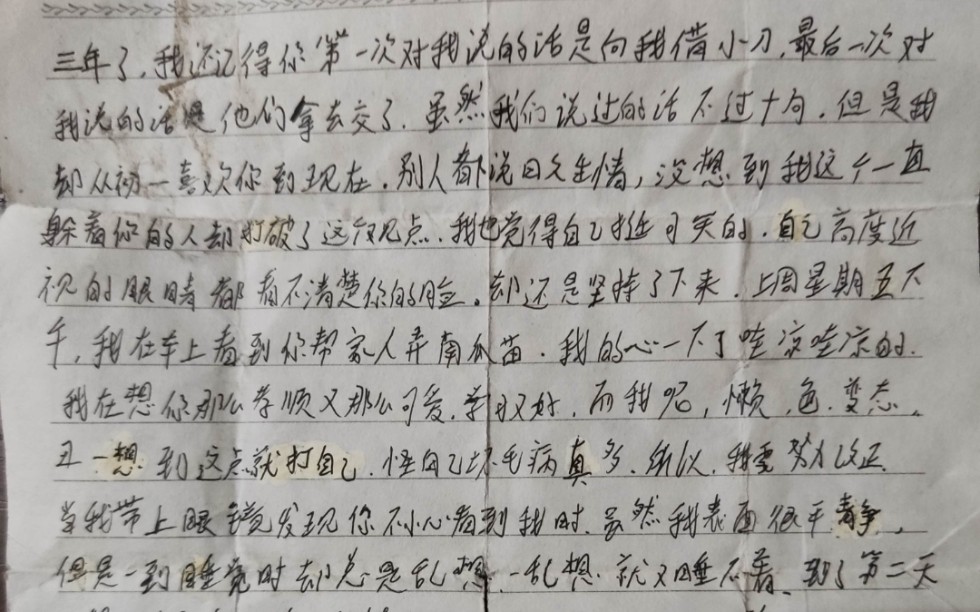 三年了,我还记得你第一次对我说的话是向我借小刀,最后一次对
我说的话是他们拿去交了.虽然我们说过的话不过十句.但是我
却从初一喜欢你到现在.别人都说日久生情,没想到我这个一直
躲着你的人却打破了这个观点.我也觉得自己挺可笑的.自己高度近
视的眼睛都看不清楚你的脸。却还是坚持了下来.上周星期五下
午,我在车上看到你帮家人弄南瓜苗.我的心一下子哇凉哇凉的.
我在想你那么孝顺又那么可爱.学习又好.而我呢,懒、色.变态.
丑一想到这点就打自己.怪自己坏毛病真多.所以.我要努力改正.
当我带上眼镜发现你不小心看到我时.虽然我表面很平静,
但是一到睡觉时却总是乱想.一乱想.就又睡不着、到了第二天